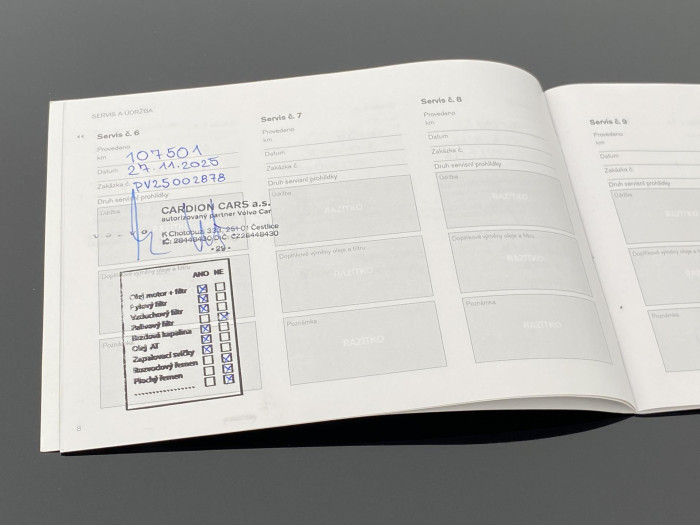 SERVIS A ÚDRŽBA
Servis č. 6
Provedeno
km 107501
Datum 27.11.2025
Zakázka č. PV25002878
Druh servisní prohlídky
Údržba
CARDION CARS a.s.
autorizovaný partner Volvo Car
K Chotobuzi 333, 251 01 Čestlice
IČ: 28448430 DIČ: CZ28448430
- 29 -
Doplňkové výměny oleje a filtru
ANO NE
Olej motor + filtr
Pylový filtr
Vzduchový filtr
Palivový filtr
Brzdová kapalina
Olej AT
Zapalovací svíčky
Rozvodový řemen
Plochý řemen
8
Servis č. 7
Provedeno
km
Datum
Zakázka č.
Druh servisní prohlídky
Údržba
RAZÍTKO
Doplňkové výměny oleje a filtru
RAZÍTKO
Poznámka
RAZÍTKO
Servis č. 8
Provedeno
km
Datum
Zakázka č.
Druh servisní prohlídky
Údržba
RAZÍTKO
Doplňkové výměny oleje a filtru
RAZÍTKO
Poznámka
RAZÍTKO
Servis č. 9
Provedeno
km
Datum
Zakázka č.
Druh servisní prohlídky
Údržba
Doplňkové výměny oleje a filtru
Poznámka